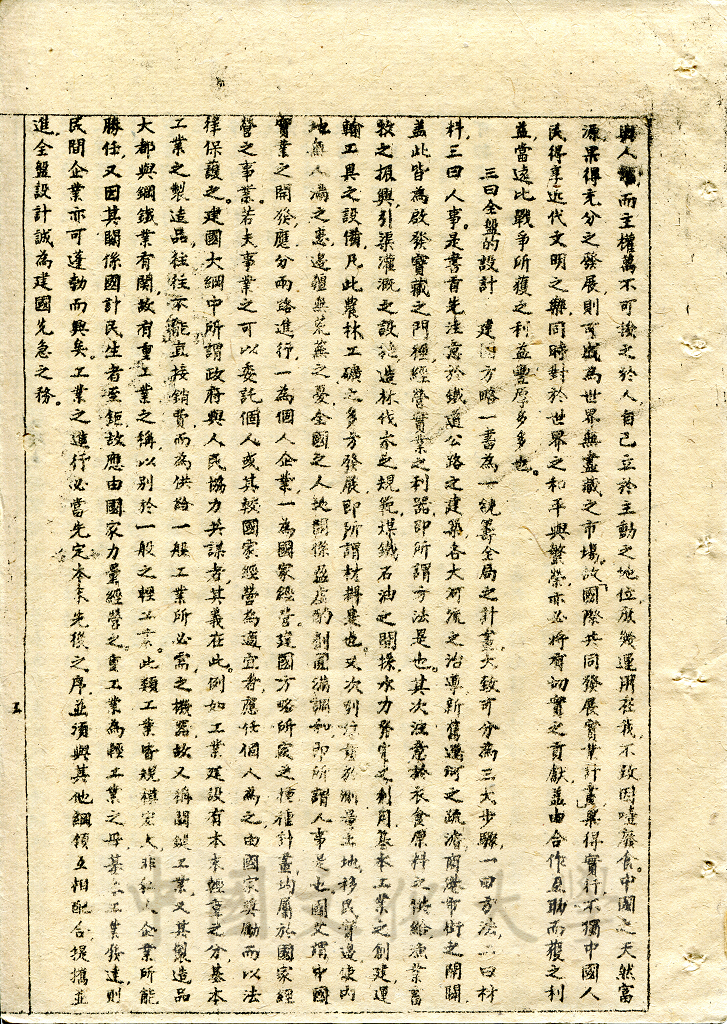 與人權而主權萬不可操之於人自己立於主動之地位庶幾運用在我不致因噎廢食中國之天然富
源果得充分之發展則可成為世界無盡藏之市場故國際共同發展實業計畫果得實行不獨中國人
民得享近代文明之樂同時對於世界之和平與繁榮亦必將有切實之貢獻蓋由合作互助而獲之利
益當遠比戰爭所獲之利益豐厚多多也。
三曰全盤的設計 建國方略一書為一統籌全局之計畫大致可分為三大步驟一曰方法二曰材
料三曰人事。是書首先注意於鐵道公路之建築各大河流之治導新舊運河之疏濬商港市街之開闢
蓋此皆為啟發寶藏之門極經營實業之利器即所謂方法是也其次注意於衣食原料之供給漁業畜
牧之振興引渠灌溉之設施造林伐木之規範煤鐵石油之開採水力發電之利用基本工業之創建運
輸工具之設備凡此農林工礦之多方發展即所謂材料是也又次則注重於測量土地移民實邊使內
地無人滿之患邊疆無荒蕪之憂全國之人地關係益虛酌劑圓滿調和即所謂人事是也國父謂中國
實業之開發應分兩路進行一為個人企業一為國家經營建國方略所定之種種計畫均屬於國家經
營之事業若夫事業之可以委託個人或其較國家經營為適宜者應任個人為之由國家獎勵而以法
律保護之。建國大綱中所謂政府與人民協力共謀者其義在此。例如工業建設有本末輕重之分基本
工業之製造品往往不能直接銷費而為供給一般工業所必需之機器故又稱關鍵工業又其製造品
大都與鋼鐵業有關故有重工業之稱以別於一般之輕工業。此類工業皆規模宏大非私人企業所能
勝任又因其關係國計民生者至鉅故應由國家力量經營之。重工業為輕工業之母基本工業發達則
民間企業亦可達動而興矣。工業之進行必當先定本末先後之序並須與其他綱領互相配合提攜並
進全盤設計誠為建國先急之務。
五
中國文化大學